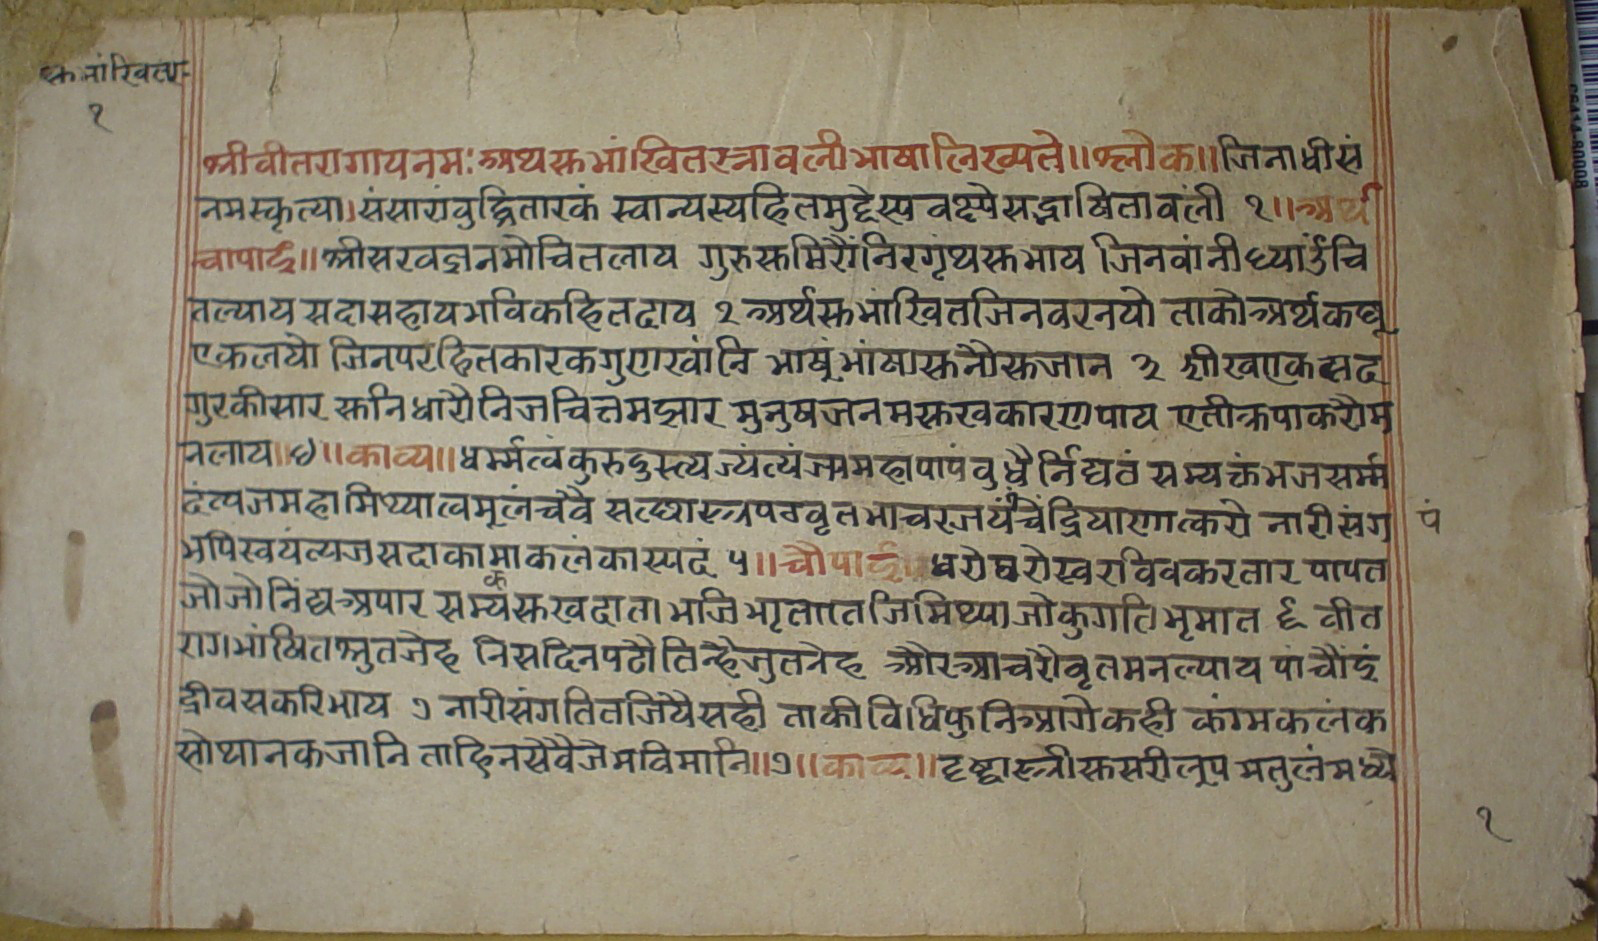 सुभांखित्य-
१
श्रीवीतरागायनमः अथसुभांखितरत्नावलीभाषालिख्यते॥श्लोक॥जिनाधीसं
नमस्कृत्या।संसारांवुद्धितारकं स्वान्यस्यहितमुद्दैस्य वक्ष्येसद्भाषितावंली १॥अर्थ
चापाई॥श्रीसरवज्ञनमोचितलाय गुरुसुमिरौंनिरगृंथसुभाय जिनवांनीध्याऊंचि
तल्याय सदासहायभविकहितदाय २ अर्थसुभांखितजिनवरनयो ताकोअर्थकछू
एकलयो जिनपरहितकारकगुणखांनि भाषुंभांषासुनौसुजान ३ सीखएकसद
गुरकीसार सुनिधारौनिजचित्तमझार मुनुषजनमसुखकारणपाय एतीक्रपाकरौम
नलाय॥४॥काव्य॥धर्म्मत्वंकुरु महापापंवुधैर्निंद्यतं सम्यक्तंभजसर्म्म
दंत्यजमहामिथ्यात्वमूलंचवै सत्छास्त्रपठवृतमाचरजयंचैंद्रियाणात्करौ नारीसंग
पं
मपिस्वयंत्यजसदाकामाकलंकास्पदं ५॥चौपाई॥ धरोधरोस्वरविवकरतार पापत
जोजोनिंद्यअपार सम्यकसुखदाता भजिभृतातजिमिथ्याजोकुगतिभृमात ६ वीत
रागभांषितश्रुतजेह निसदिनपठौतिन्हैजुतनेह औरआचरौवृतमनल्याय पांचौंइं
द्रीवसकरिभाय ७ नारीसंगतितजियैसही ताकीविधिफुनिआगेकही कांमकलंक
सोथानकजानि ताहिनसेवैजेमविमानि॥७॥काव्य॥दृष्ट्वास्त्रीसुसरीरूपमतुलंमध्यै
१